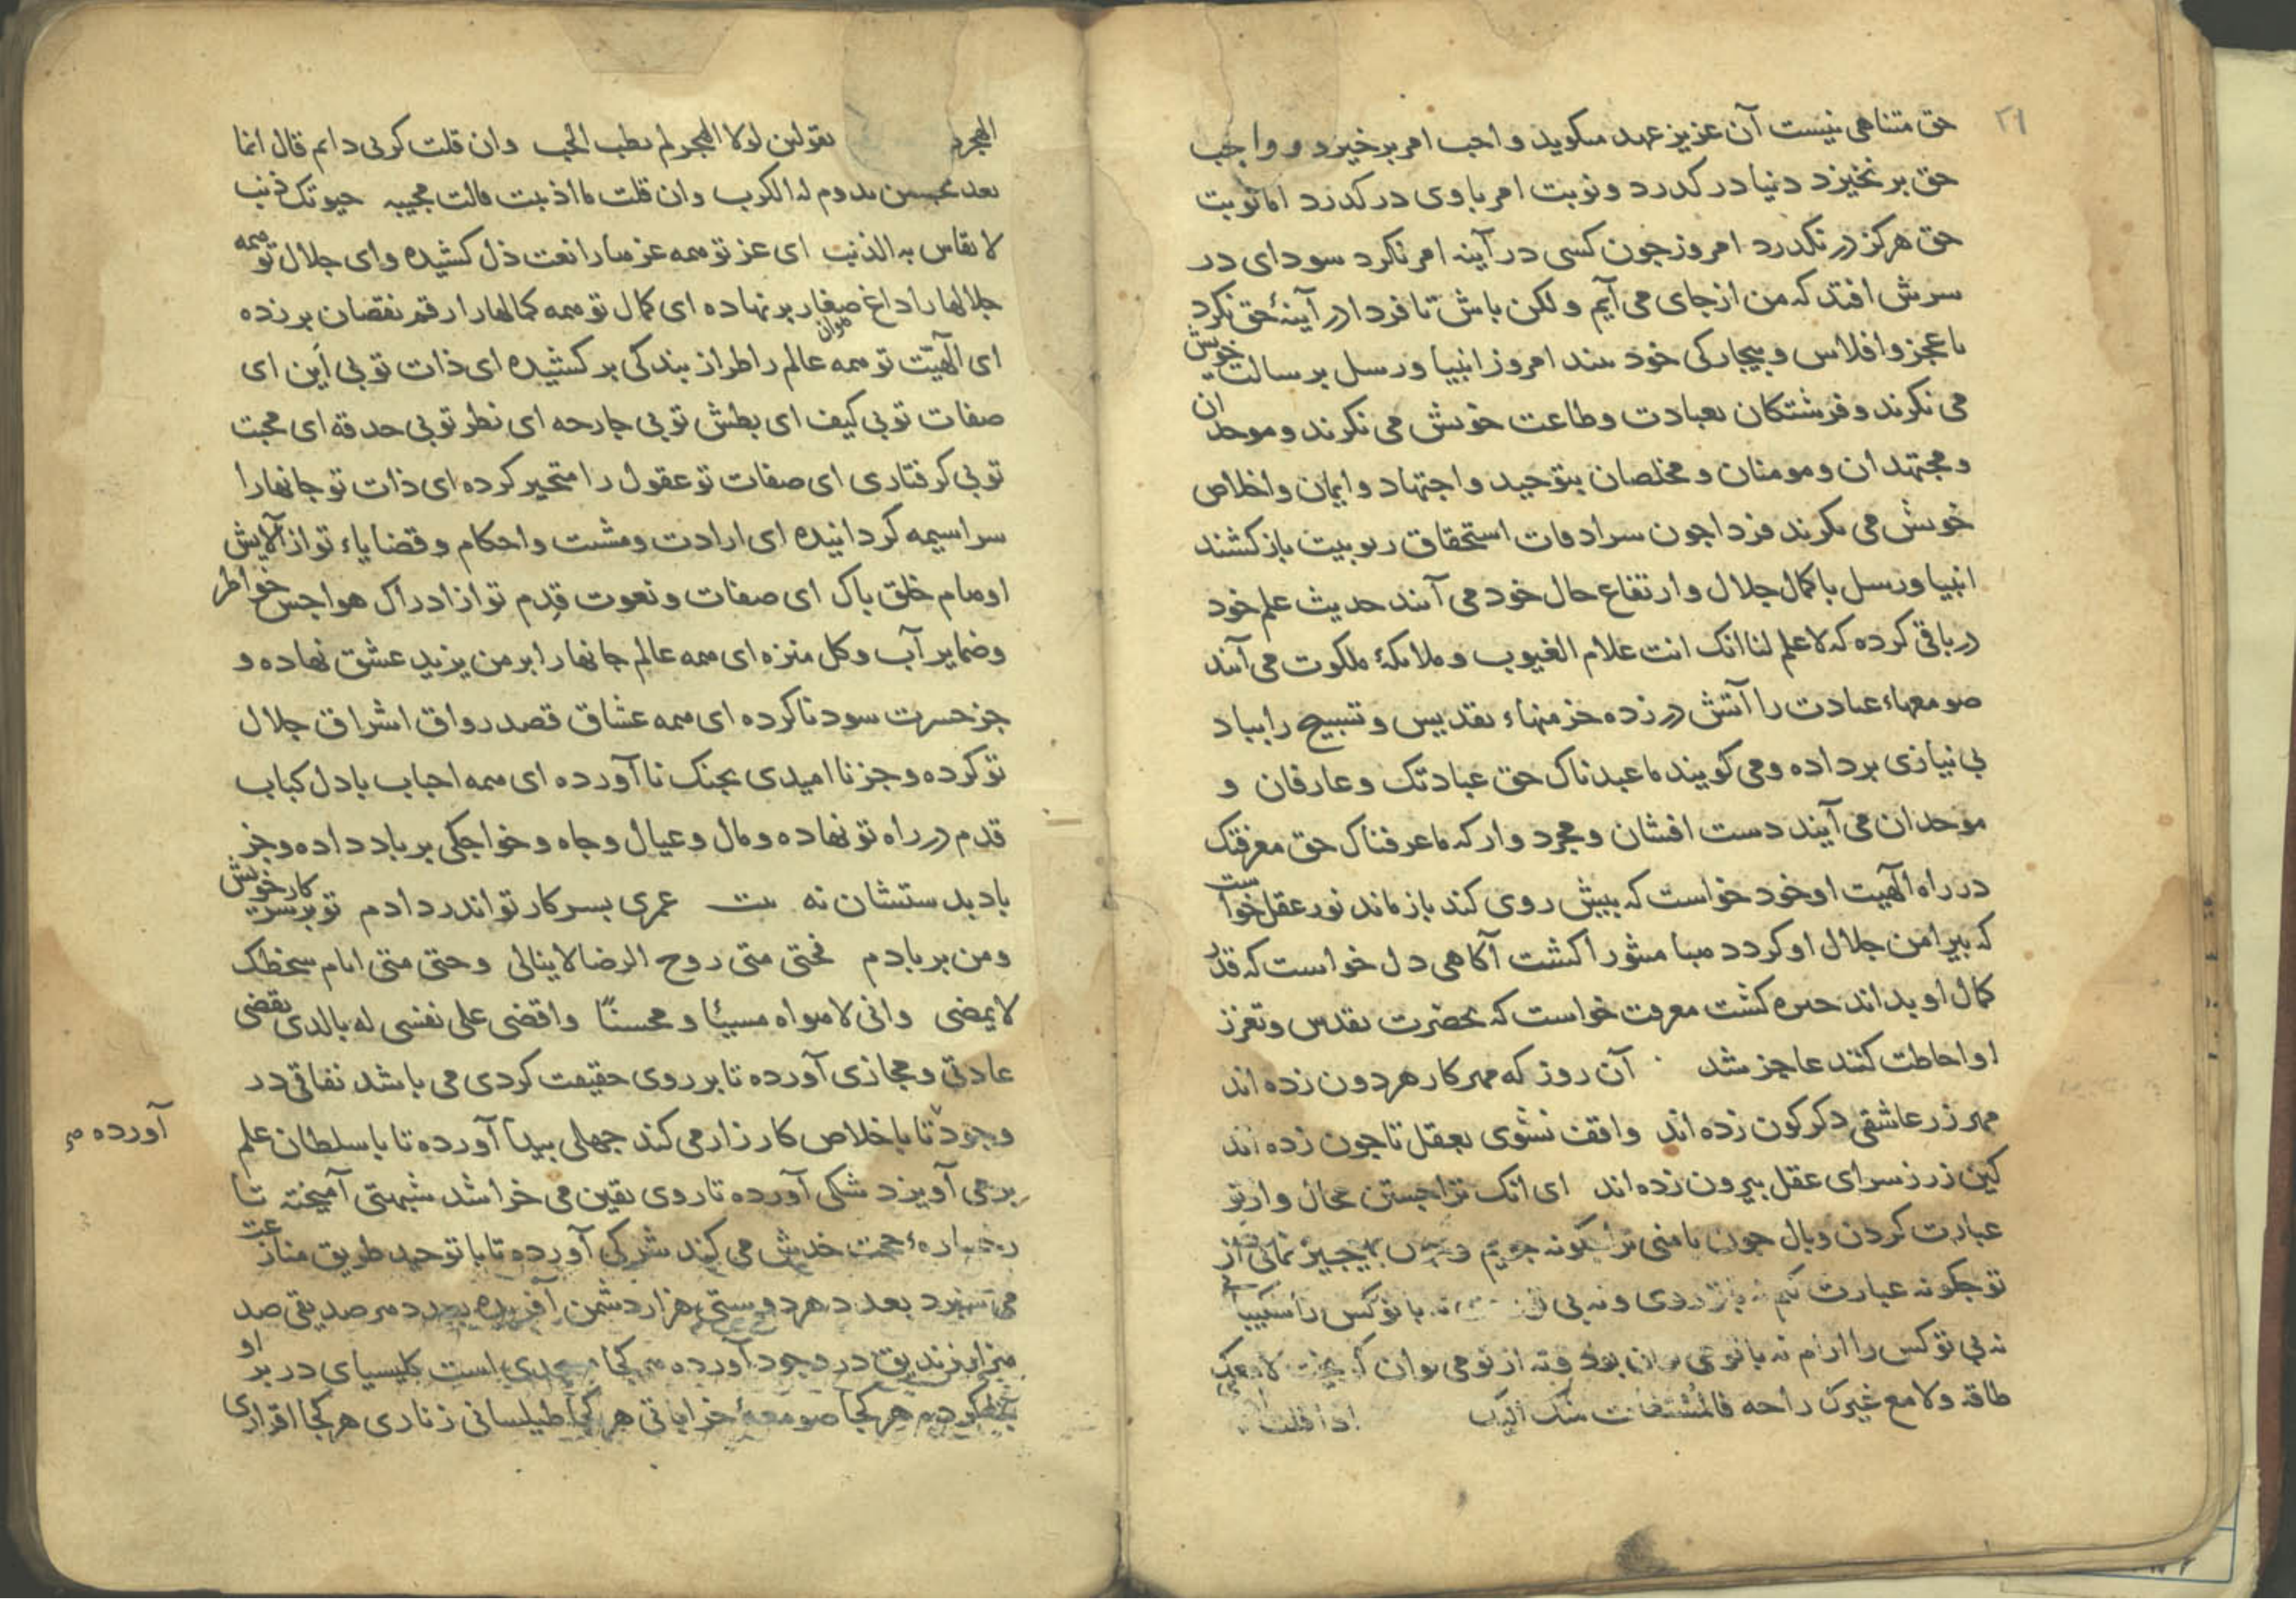 ۲۱
حق متناهی نیست آن عزیز عهد میکوید واجب امر برخیزد و واجب
حق برنخیزد دنیا در کدرد و نوبت امر باوی در کدرد اما نوبت
حق هرکز در نکدرد امروز جون کسی در آینه امر نکرد سودای در
سرش افتد که من از جای می آیم ولکن باش تا فردا در آینهٔ حق نکرد
با عجز و افلاس و بیجارکی خود بیند امروز انبیا و رسل برسالت خویش
می نکرند و فرشتکان بعبادت و طاعت خویش می نکرند و موحدان
و مجتهدان و مومنان و مخلصان بتوحید و اجتهاد و ایمان و اخلاص
خویش می نکرند فردا جون سرادقات استحقاق ربوبیت باز کشند
انبیا و رسل با کمال جلال و ارتفاع حال خود می آیند حدیث علم خود
در باقی کرده که لا علم لنا انک انت علام الغیوب و ملائکهٔ ملکوت می آیند
صومعهاء عبادت را آتش در زده خرمنهاء تقدیس و تسبیح را بباد
بی نیازی برداده و می کویند ما عبدناک حق عبادتک و عارفان و
موحدان می آیند دست افشان و مجرد وار که ما عرفناک حق معرفتک
در راه الهیت او خود خواست که بیش روی کند باز ماند نور عقل خواست
که بیرامن جلال او کردد هبا منثورا کشت آکاهی دل خواست که قدر
کمال او بداند حیره کشت معرفت خواست که بحضرت تقدس و تعزز
او احاطت کند عاجز شد آن روز که مهر کار هردون زده اند
مهر زر عاشقی دکرکون زده اند واقف نشوی بعقل تا جون زده اند
کین زر ز سرای عقل بیرون زده اند ای انک ترا جستن محال و از تو
عبارت کردن وبال جون با منی ترا جکونه جویم
تو جکونه عبارت کنم با تو کس را شکیبائی
نه بی تو کس را ارام نه با تو می توان بود و نه از تو می توان
طاقه ولا مع غیرک راحه فالمستغاث منک الیک اذا قلت
الهجر تقولین لولا الهجر لم یطب الحب وان قلت کربی دایم قال انما
یعد محبسن یدوم له الکرب وان قلت ما اذنبت قالت مجیبه حیوتک ذنب
لا یقاس به الذنب ای عز تو همه عزها را نعت ذل کشیده و ای جلال تو همه
جلالها را داغ صغار بر نهاده ای کمال تو همه کمالها را رقم نقصان برزده
ای الهیّت تو همه عالم را طراز بندکی برکشیده ای ذات تو بی این ای
صفات تو بی کیف ای بطش تو بی جارحه ای نظر تو بی حدقه ای محبت
تو بی کرفتاری ای صفات تو عقول را متحیر کرده ای ذات تو جانها را
سراسیمه کردانیده ای ارادت و مشیت و احکام و قضایاء تو از آلایش
اوهام خلق باک ای صفات و نعوت قدم تو از ادراک هواجس خواطر
و ضمایر آب و کل منزه ای همه عالم جانها را بر من یزید عشق نهاده و
جز حسرت سود ناکرده ای همه عشاق قصد رواق اشراق جلال
تو کرده و جز نا امیدی بجنک نا آورده ای همه احباب با دل کباب
قدم در راه تو نهاده و مال و عیال و جاه و خواجکی برباد داده و جز
باد بدستشان نه بیت عمری بسر کار تو اندر دادم تو بر سر کار خویش
و من بر بادم فحتی متی روح الرضا لا ینالنی و حتی متی ایام سخطک
لا یمضی وانی لاهواه مسیئا و محسنًا واقضی علی نفسی له بالدی یقضی
عادتی و مجازی آورده تا بر روی حقیقت کردی می باشد نفاقی در
وجود تا با خلاص کارزار می کند جهلی بیدا آورده تا با سلطان علم
آورده صح
برمی آویزد شکی آورده تا روی یقین می خراشد شبهتی آمیخته تا
رخسارهٔ حجت خدش می کند شرکی آورده تا با توحید طریق منازعت
می سبرد بعدد هر دوستی هزار دشمن آفریده بعدد هر صدیقی صد
هزار زندیق در وجود آورده هر کجا مسجدی است کلیسیای در بر او
هر کجا صومعهٔ خراباتی هر کجا طیلسانی زناری هر کجا اقراری